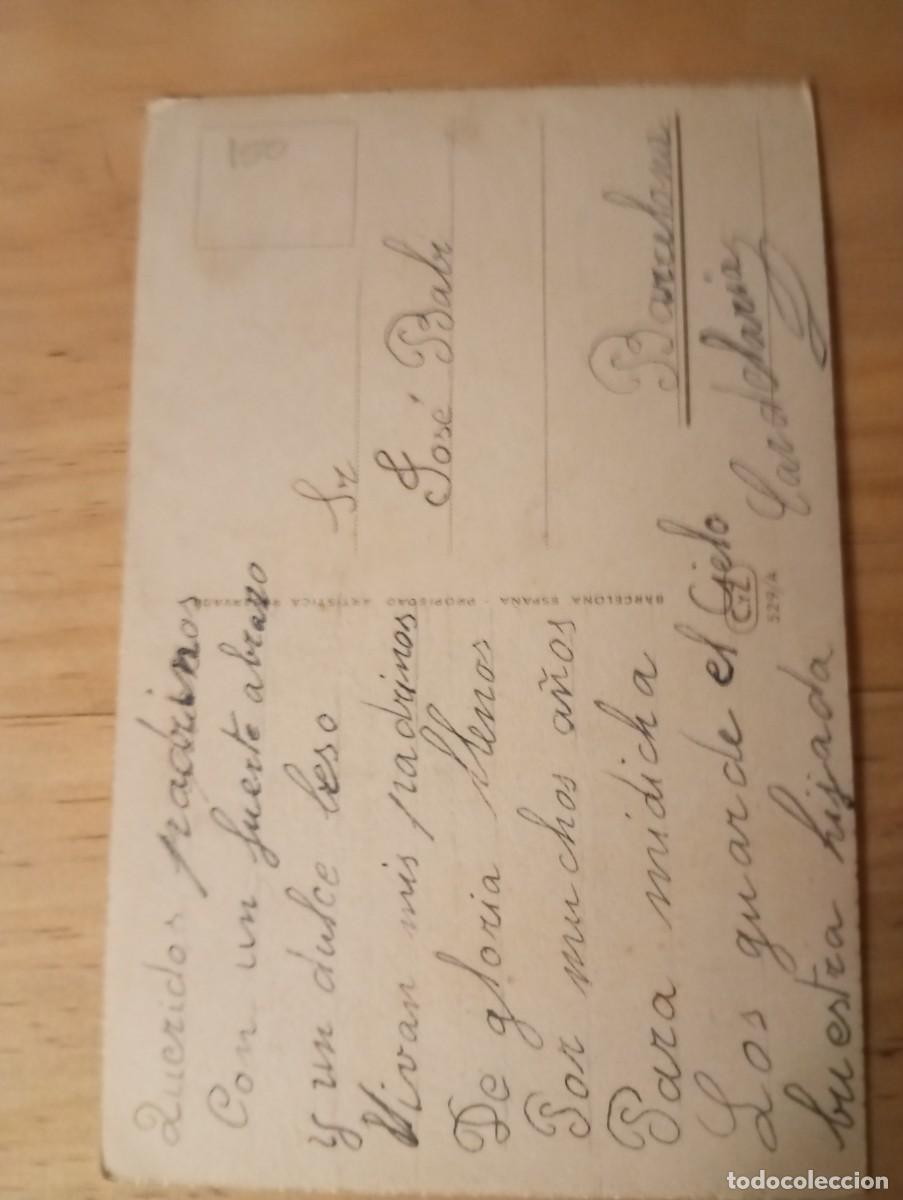 Queridos padrinos
Con un fuerte abrazo
y un dulce beso
Vivan mis padrinos
De gloria llenos
Por muchos años
Para midicha
Los guarde el Cielo
buestra hijada
BARCELONA ESPAÑA - PROPIEDAD ARTISTICA RESERVADA
CYZ
529/A
100
Sr
José Balv
Barcelona
todocoleccion